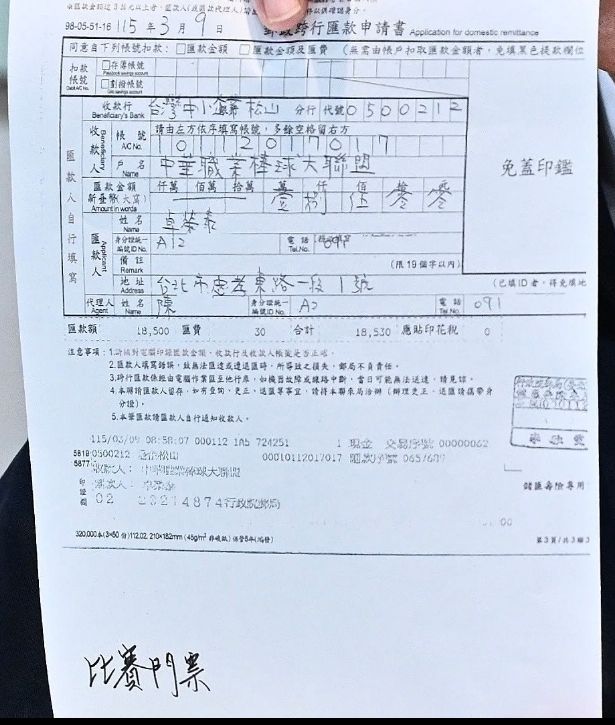 98-05-51-16 115年3月9日 郵政跨行匯款申請書 Application for domestic remittance
同意自下列帳號扣款：□匯款金額 □匯款金額及匯費 (無需由帳戶扣取匯款金額者，免填黑色提款欄位
扣款帳號 Debit A/C No. □存簿帳號 Passbook savings account
□劃撥帳號 Giro savings account
匯款人自行填寫
收款人 Beneficiary
收款行 Beneficiary's Bank 台灣中小企業松山 分行 代號 0500212
帳號 A/C No. 請由左方依序填寫帳號，多餘空格留右方
10112017017
戶名 Name 中華職業棒球大聯盟
免蓋印鑑
匯款金額 新臺幣(大寫) Amount in words 仟萬 佰萬 拾萬 萬 仟 佰 拾 元
壹 捌 伍 零 零
匯款人 Applicant
姓名 Name 卓榮泰
身分證統一編號ID No. A12 電話 Tel.No.
備註 Remark (限19個字以內)
地址 Address 台北市忠孝東路一段1號 (已填ID者，得免填地
代理人 Agent 姓名 Name 陳 身分證統一編號ID No. A2 電話 Tel No. 091
匯款額 18,500 匯費 30 合計 18,530 應貼印花稅 0
注意事項：1.請核對電腦印錄匯款金額、收款行及收款人帳號是否正確。
2.匯款人填寫錯誤，致無法匯達或遭退匯時，所導致之損失，郵局不負責任。
3.跨行匯款係經由電腦作業匯至他行，如機器故障或線路中斷，當日可能無法送達，請見諒。
4.本聯請匯款人留存，如有查詢、更正、退匯等事宜，請持本聯來局洽辦（辦理更正、退匯請攜帶身分證）。
5.本筆匯款請匯款人自行通知收款人。
115/03/09 08:58:07 000112 1A5 724251 1 現金 交易序號 00000062
5819 0500212 忠企松山 00010112017017 匯款序號
5877 收款人：中華職業棒球大聯盟
印證欄
行政院郵局
儲匯壽險專用
320,000本(3×50份)112.02. 210×182mm (45g/m² 非碳紙) 保管5年
第3頁/共3聯
比賽門票